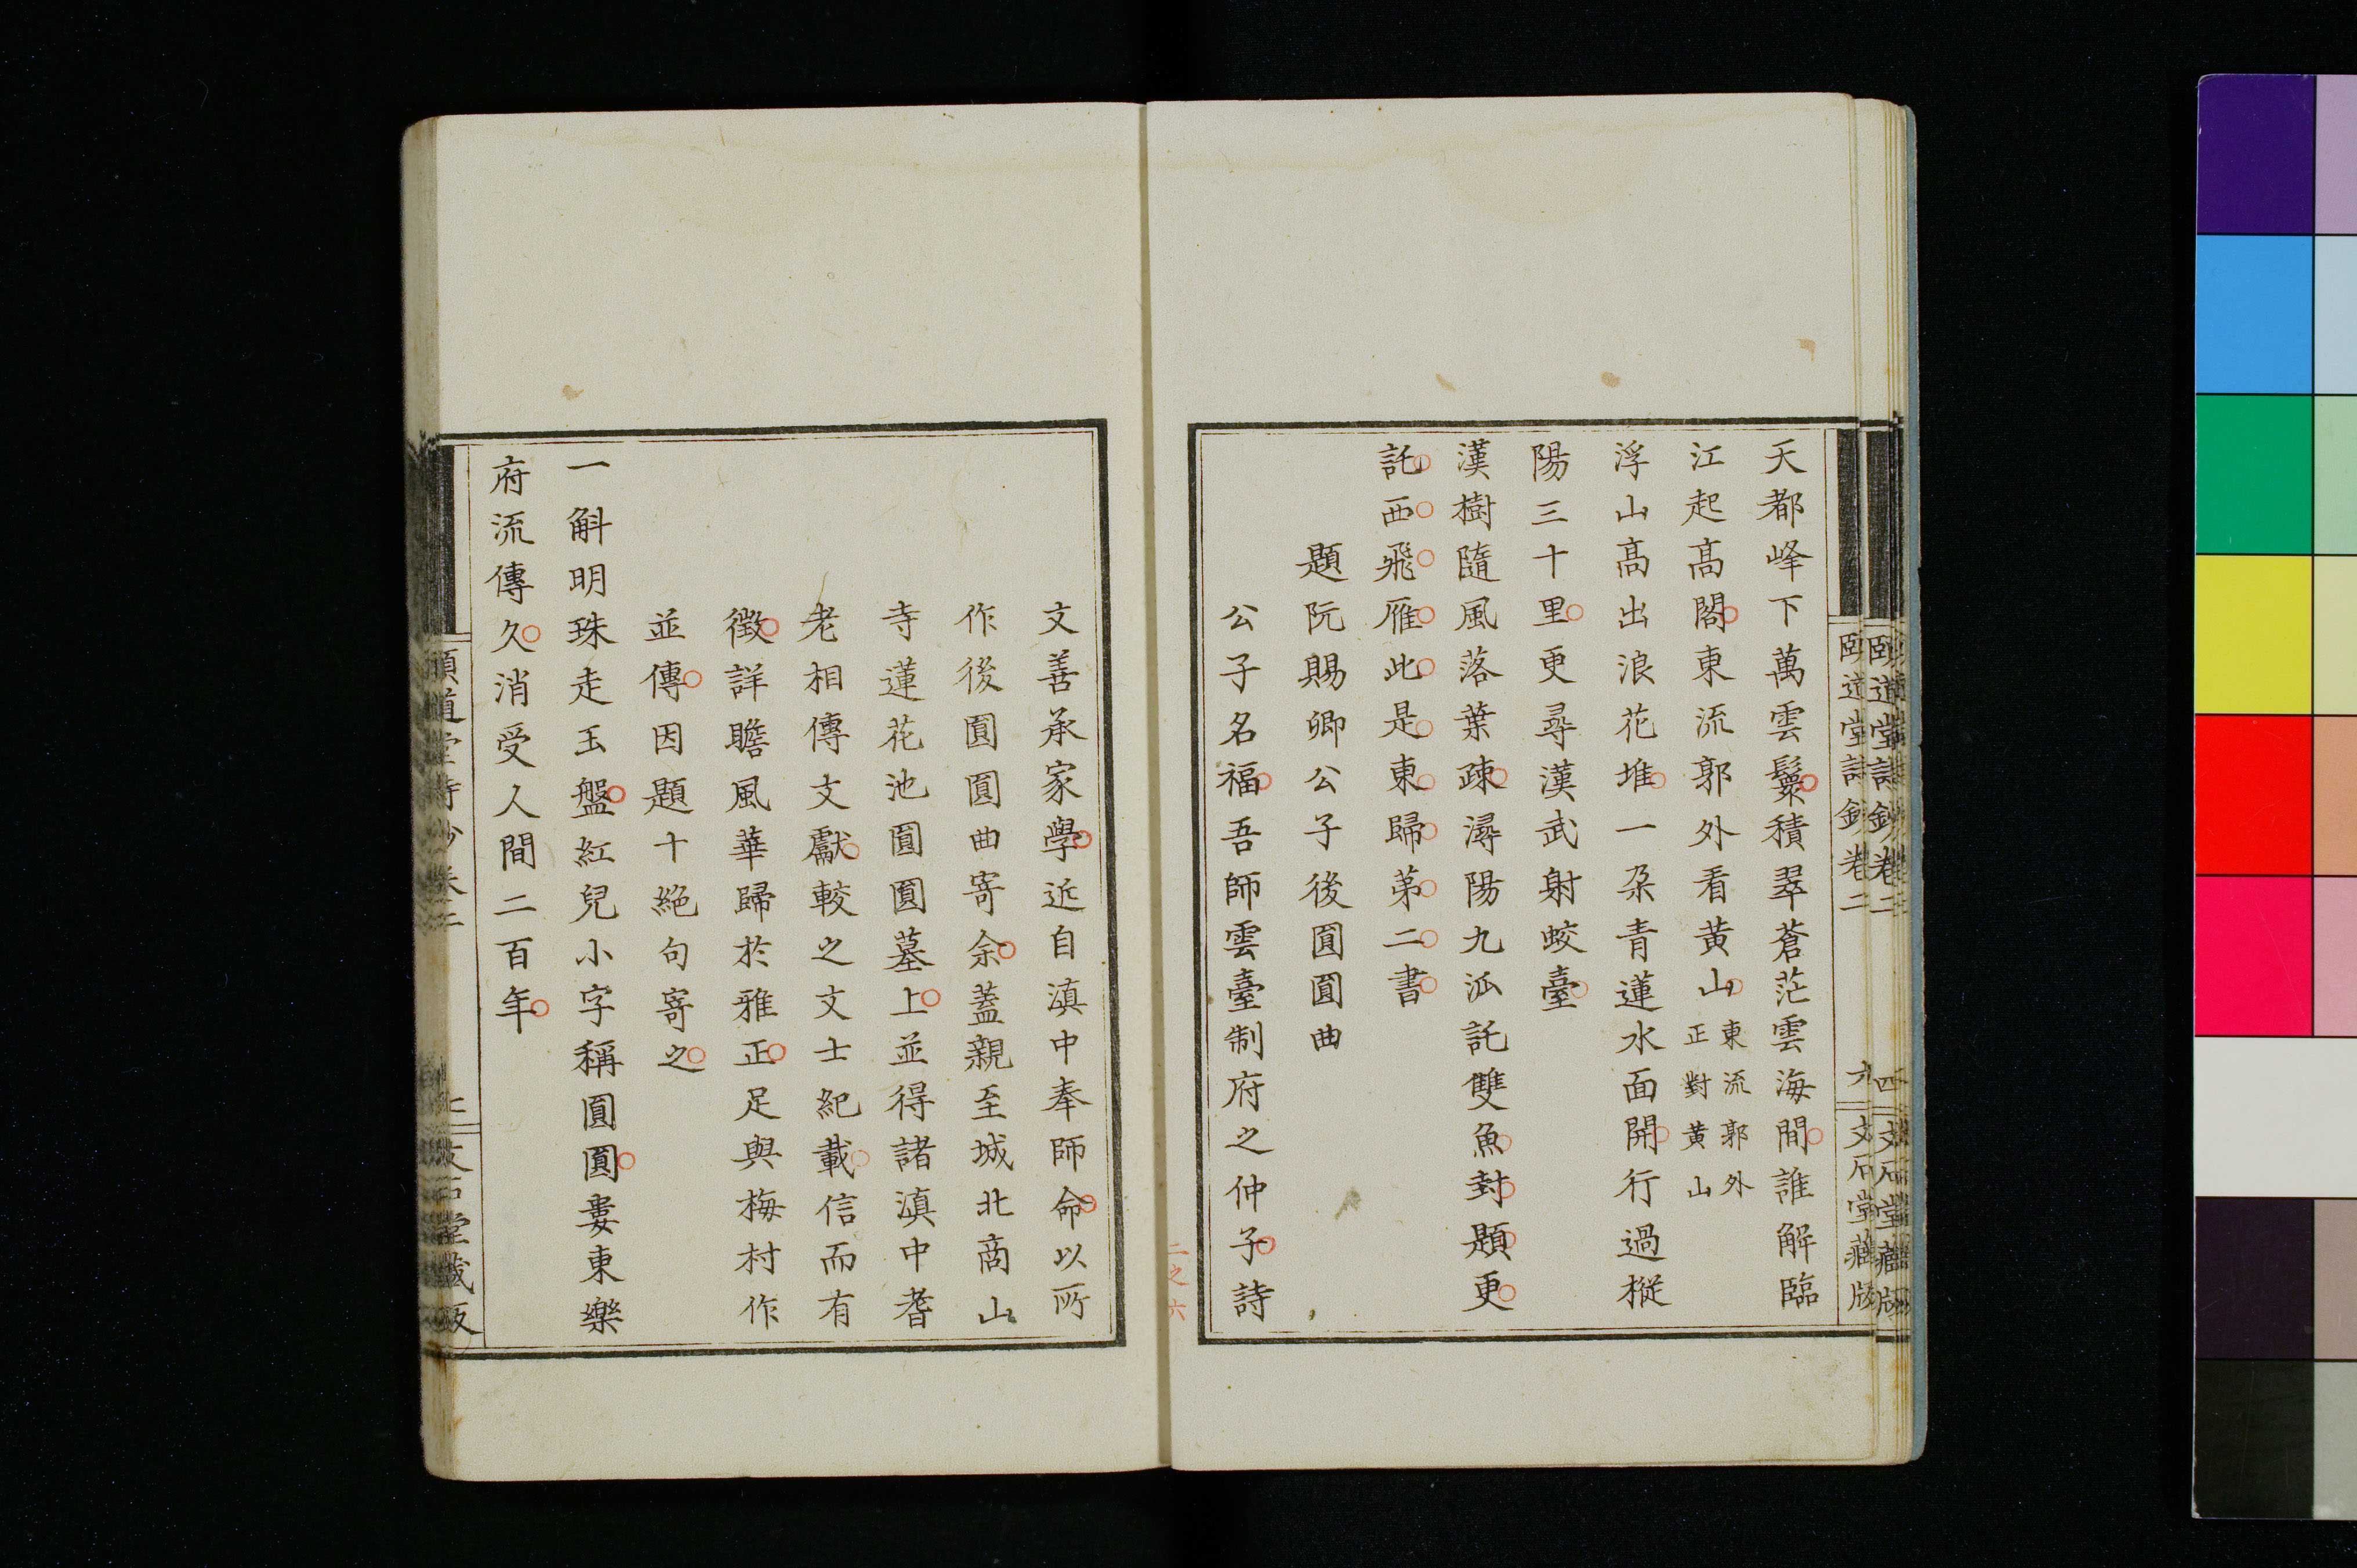 天都峰下萬雲鬟積翠蒼茫雲海間誰解臨
江起高閣東流郭外看黃山東流郭外正對黃山
浮山高出浪花堆一朶青蓮水面開行過樅
陽三十里更尋漢武射蛟臺
漢樹隨風落葉疎潯陽九派託雙魚封題更
託西飛雁此是東歸第二書
題阮賜卿公子後圓圓曲
公子名福吾師雲臺制府之仲子詩
二之六
文善承家學近自滇中奉師命以所
作後圓圓曲寄余蓋親至城北商山
寺蓮花池圓圓墓上並得諸滇中耆
老相傳文獻較之文士紀載信而有
徵詳瞻風華歸於雅正足與梅村作
並傳因題十絕句寄之
一斛明珠走玉盤紅兒小字稱圓圓婁東樂
府流傳久消受人間二百年
頤道堂詩鈔卷二
文石堂藏版